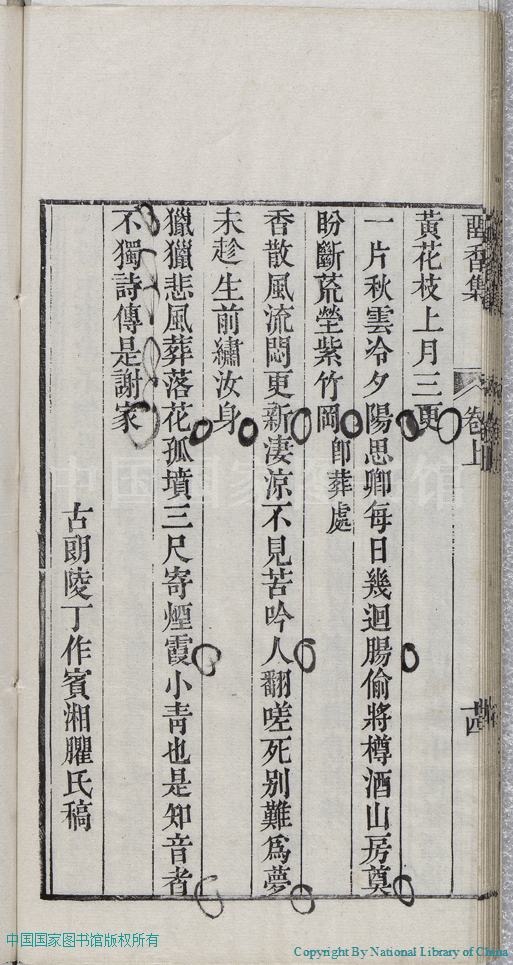 黃花枝上月三更
一片秋雲冷夕陽思卿每日幾迴腸偷將樽酒山房奠
盼斷荒塋紫竹岡卽葬處
香散風流悶更新淒涼不見苦吟人翻嗟死别難爲夢
未趁生前繡汝身
獵獵悲風葬落花孤墳三尺寄煙霞小靑也是知音者
不獨詩傳是謝家
古朗陵丁作賓湘臞氏稿
香集
卷上
十四
中国国家图书馆
中国国家图书馆版权所有
Copyright By National Library of China